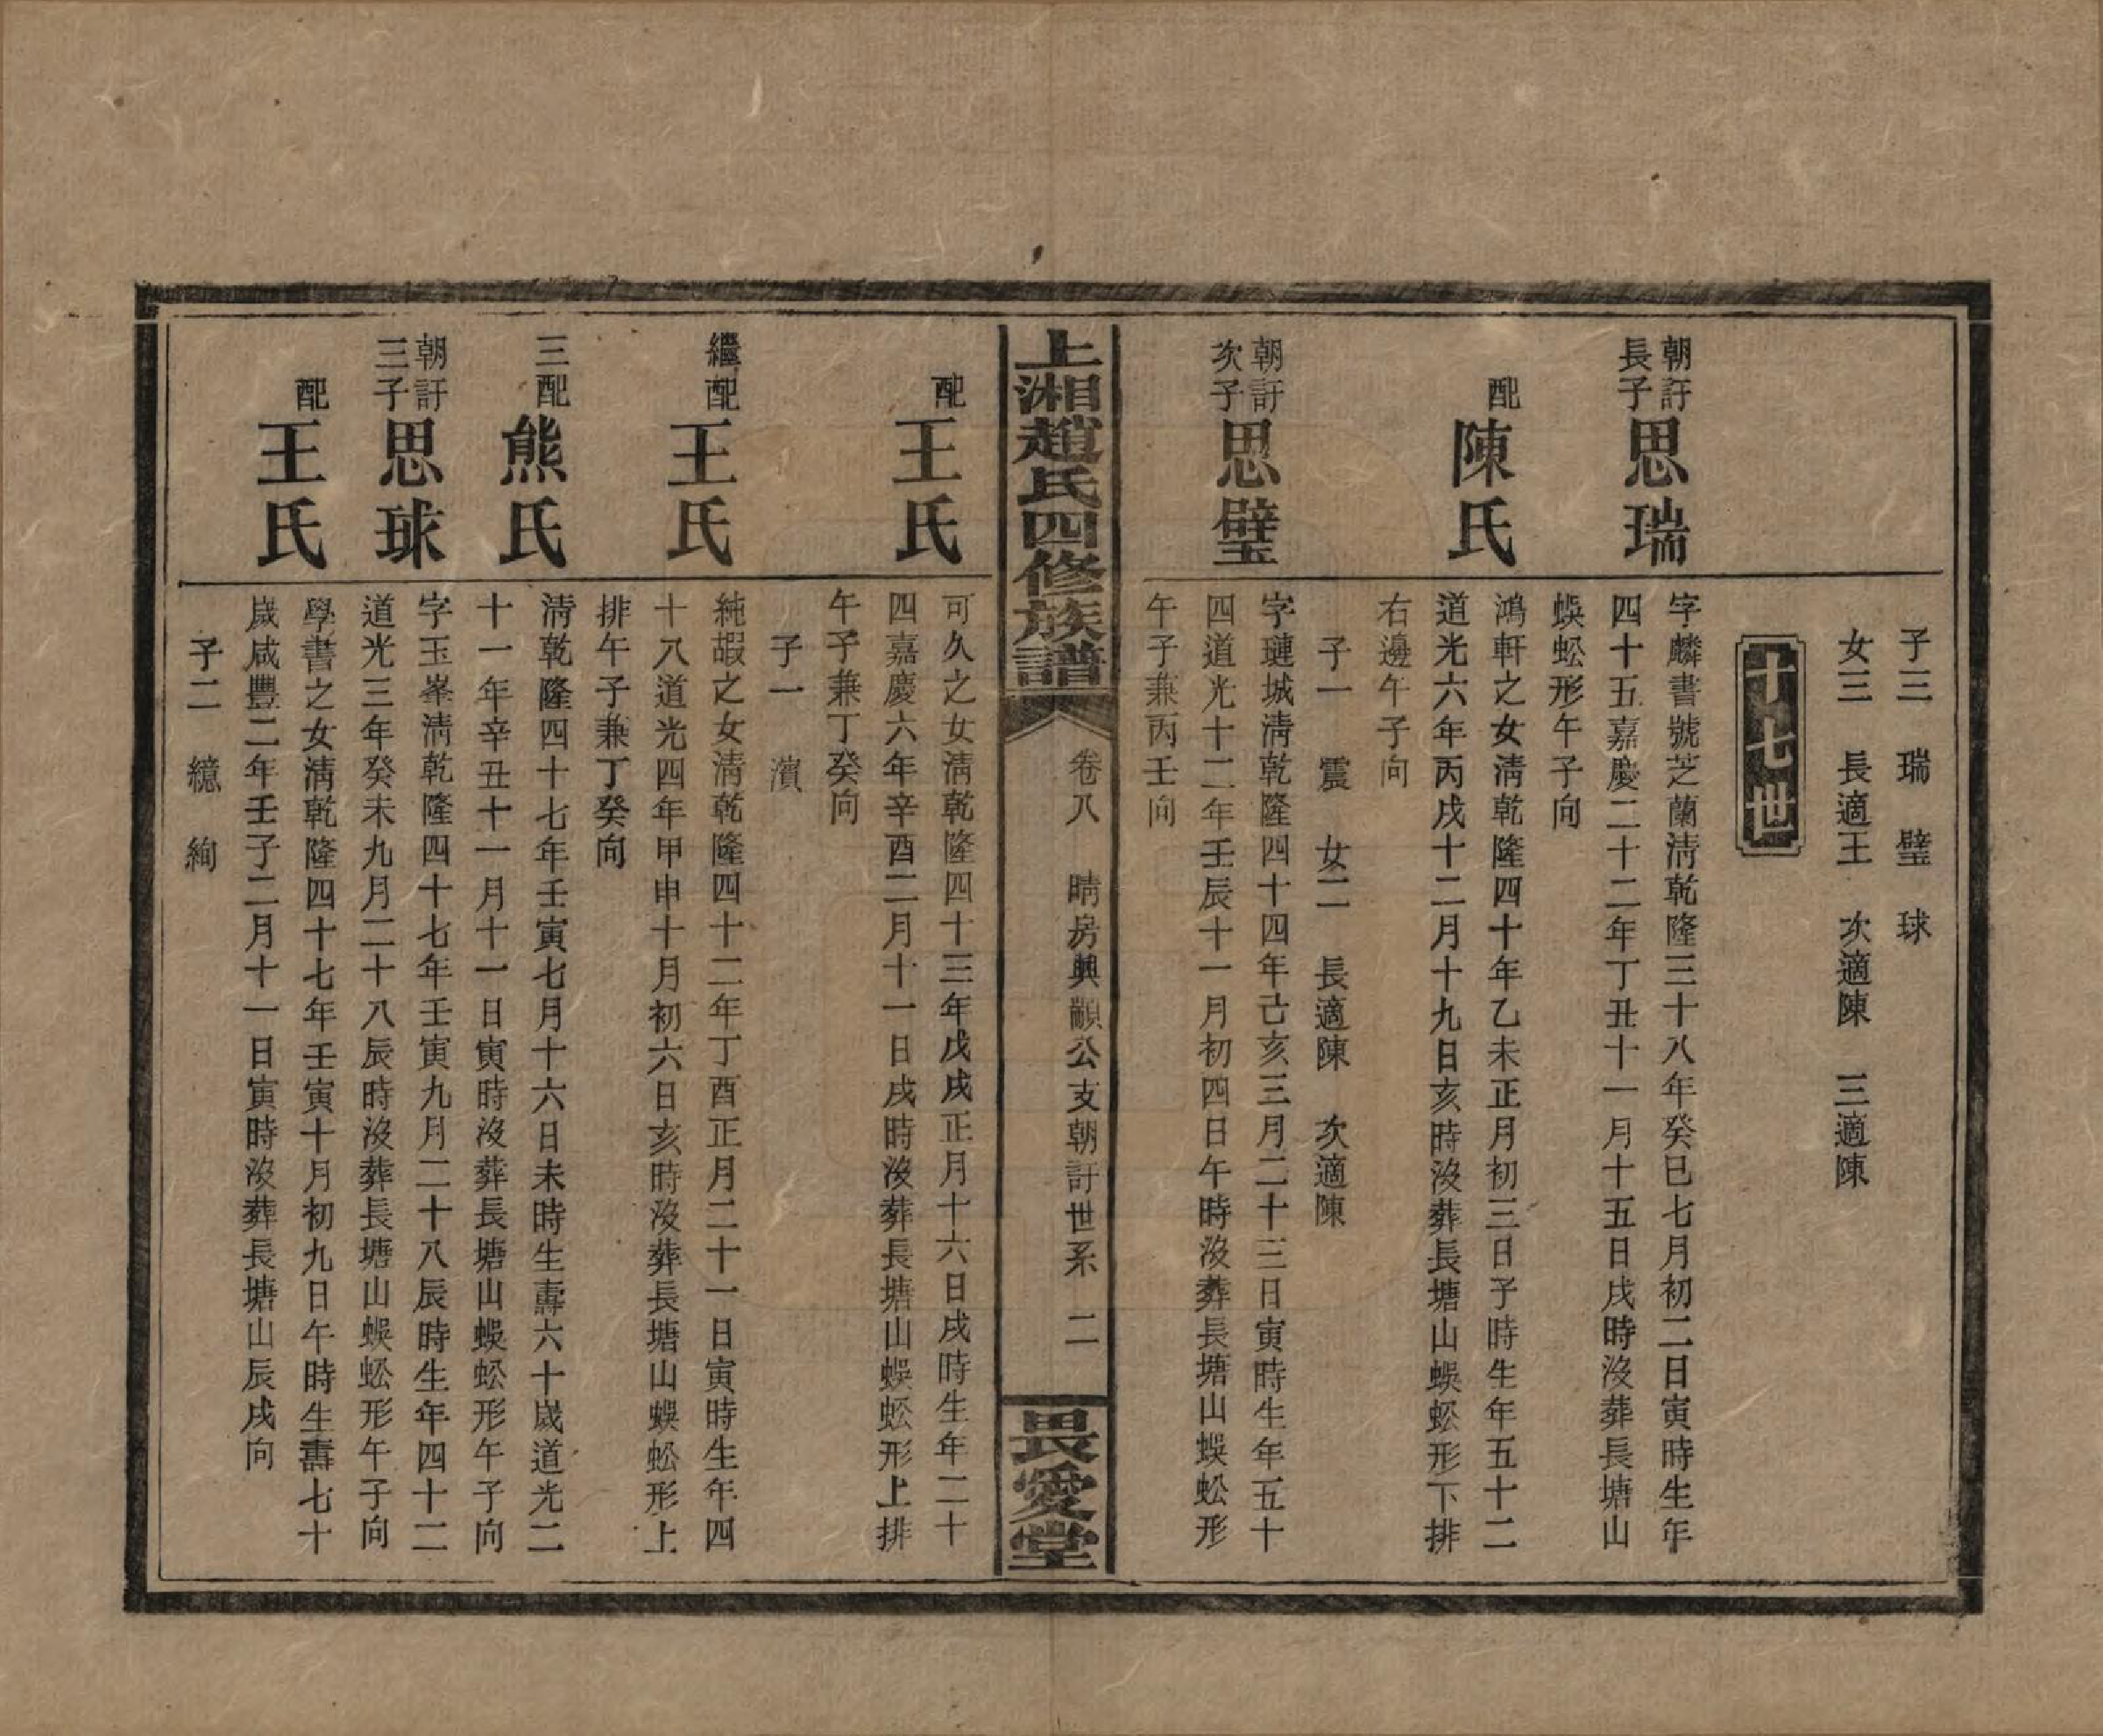 子三　瑞　璧　球
女三　長適王　次適陳　三適陳
十七世
朝訏長子思瑞
字麟書號芝蘭清乾隆三十八年癸巳七月初二日寅時生年
四十五嘉慶二十二年丁丑十一月十五日戌時沒葬長塘山
蜈蚣形午子向
配陳氏
鴻軒之女清乾隆四十年乙未正月初三日子時生年五十二
道光六年丙戌十二月十九日亥時沒葬長塘山蜈蚣形下排
右邊午子向
子一　震　女二　長適陳　次適陳
朝訏次子思璧
字璉城清乾隆四十四年己亥三月二十三日寅時生年五十
四道光十二年壬辰十一月初四日午時沒葬長塘山蜈蚣形
午子兼丙壬向
上湘趙氏四修族譜
卷八　晴房興顴公支朝訏世系　二
畏愛堂
配王氏
可久之女清乾隆四十三年戊戌正月十六日戌時生年二十
四嘉慶六年辛酉二月十一日戌時沒葬長塘山蜈蚣形上排
午子兼丁癸向
子一　濱
繼配王氏
純嘏之女清乾隆四十二年丁酉正月二十一日寅時生年四
十八道光四年甲申十月初六日亥時沒葬長塘山蜈蚣形上
排午子兼丁癸向
三配熊氏
清乾隆四十七年壬寅七月十六日未時生壽六十歲道光二
十一年辛丑十一月十一日寅時沒葬長塘山蜈蚣形午子向
朝訏三子思球
字玉峯清乾隆四十七年壬寅九月二十八辰時生年四十二
道光三年癸未九月二十八辰時沒葬長塘山蜈蚣形午子向
配王氏
學書之女清乾隆四十七年壬寅十月初九日午時生壽七十
歲咸豐二年壬子二月十一日寅時沒葬長塘山辰戌向
子二　繶　絢